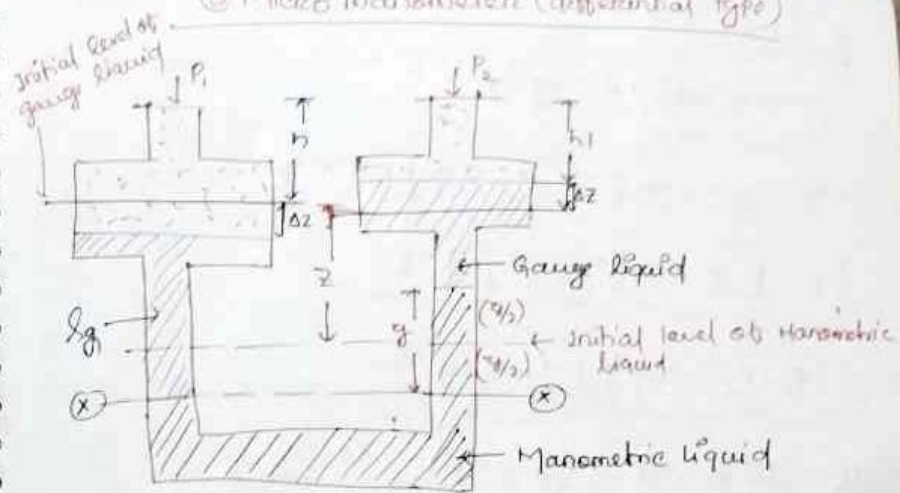 Micro Manometer (differential type)
Initial level of
gauge liquid
P₁
P₂
h
h1
ΔZ
ΔZ
Z
Gauge liquid
(y/2)
y
Initial level of Manometric
liquid
(y/2)
Sg₁
X
X
Manometric liquid